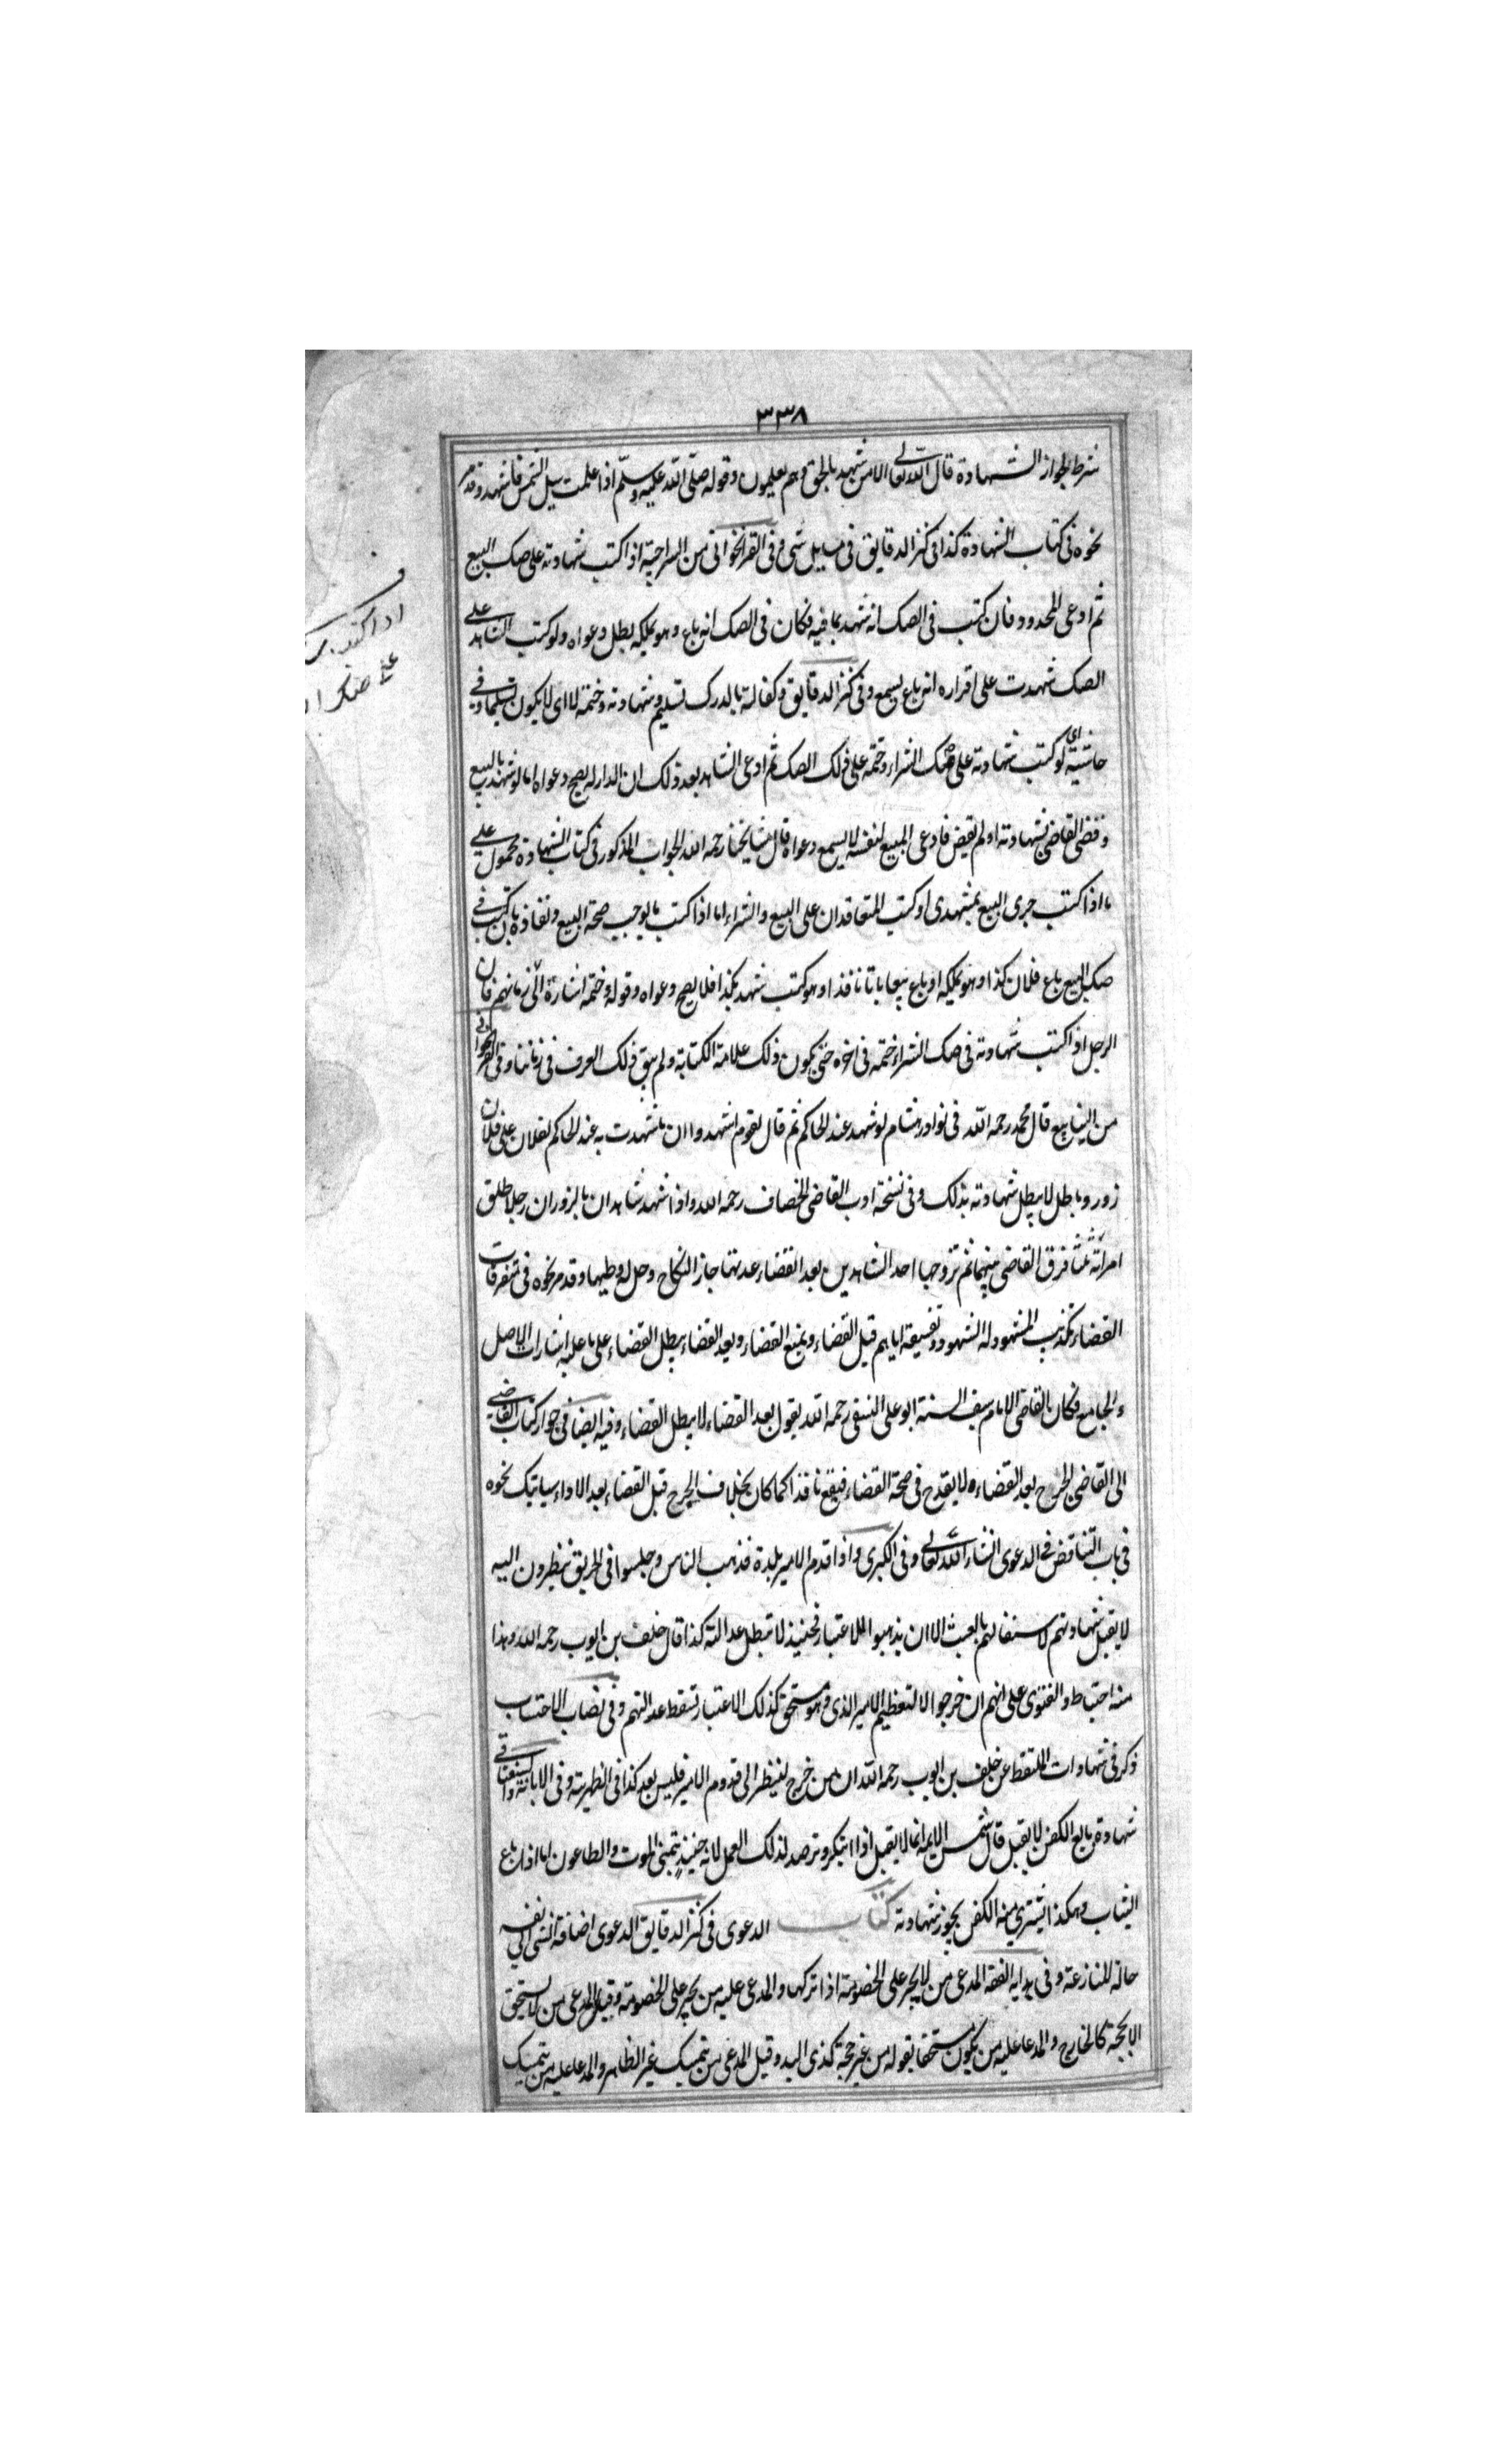 ٣٣٨
شرط لجواز الشهادة قال الله تعالى الا من شهد بالحق وهم يعلمون وقوله صلى الله عليه وسلم اذا علمت مثل الشمس فاشهد وقد مر
نحوه فى كتاب الشهادة كذا فى كنز الدقايق فى مسايل شتى وفى القراخوانى من السراجية اذا كتب شهادته على صك البيع
ثم ادعى المحدود فان كتب فى الصك انه شهد بما فيه فكان فى الصك انه باع وهو يملكه بطل دعواه ولو كتب الشاهد على
الصك شهدت على اقراره انه باع يسمع وفى كنز الدقايق وكفالته بالدرك تسليم وشهادته وختمه لا اى لا يكون تسليما وفى
حاشيته اى لو كتب شهادته على صك الشراء وختمه على ذلك الصك ثم ادعى الشاهد بعد ذلك ان الدار له يصح دعواه اما لو شهد بالبيع
وقضى القاضى بشهادته او لم يقض فادعى المبيع لنفسه لا يسمع دعواه قال مشايخنا رحمه الله الجواب المذكور فى كتاب الشهادة محمول على
ما اذا كتب جرى البيع بمشهدى او كتب المتعاقدان على البيع والشراء اما اذا كتب ما يوجب صحة البيع ونفاذه بان كتب فى
صك البيع باع فلان كذا وهو يملكه او باع بيعا باتا نافذا وهو كتب شهد بكذا فلا يصح دعواه وقوله وختمه اشارة الى زمانهم فان
الرجل اذا كتب شهادته فى صك الشراء ختمه فى اخره حتى يكون ذلك علامة الكتابة ولم يبق ذلك العرف فى زماننا وفى القراخوانى
من الينابيع قال محمد رحمه الله فى نوادر هشام لو شهد عند الحاكم ثم قال لقوم اشهدوا ان ما شهدت به عند الحاكم لفلان على فلان
زور وباطل لا يبطل شهادته بذلك وفى نسخة ادب القاضى الخصاف رحمه الله واذا شهد شاهدان بالزور ان رجلا طلق
امراته ثلثا فرق القاضى بينهما ثم تزوجها احد الشاهدين بعد انقضاء عدتها جاز النكاح وحل له وطيها وقد مر نحوه فى متفرقات
القضاء تكذيب المشهود له الشهود وتفسيقه اياهم قبل القضاء ويمنع القضاء وبعد القضاء يبطل القضاء على ما عليه اشارات الاصل
والجامع فكان القاضى الامام سيف السنة ابو على النسفى رحمه الله يقول بعد القضاء لا يبطل القضاء وفيه ايضا فى جواز كتاب القاضى
الى القاضى الجرح بعد القضاء لا يقدح فى صحة القضاء فيبقى نافذا كما كان بخلاف الجرح قبل القضاء بعد الاداء سياتيك نحوه
فى باب التناقض فى الدعوى انشاء الله تعالى وفى الكبرى واذا قدم الامير بلدة فذهب الناس وجلسوا فى الطريق ينظرون اليه
لا يقبل شهادتهم لاشتغالهم بالعبث الا ان يذهبوا للاعتبار فحينئذ لا تبطل عدالته كذا قال خلف بن ايوب رحمه الله وهذا
منه احتياط والفتوى على انهم ان خرجوا لا لتعظيم الامير الذى وهو مستحق كذلك الاعتبار تسقط عدالتهم وفى نصاب الاحتساب
ذكر فى شهادات الملتقط عن خلف بن ايوب رحمه الله ان من خرج لينظر الى قدوم الامير فليس بعدل كذا فى الظهيرية وفى الابانة
شهادة بايع الكفن لا يقبل قال شمس الايمة انما لا يقبل اذا ابتكر وترصد لذلك العمل لانه حينئذ يتمنى الموت والطاعون اما اذا باع
الثياب وهكذا يشترى منه الكفن يجوز شهادته كتاب الدعوى فى كنز الدقايق الدعوى اضافة الشى الى نفسه
حالة المنازعة وفى بداية الفقه المدعى من لا يجبر على الخصومة اذا تركها والمدعى عليه من يجبر على الخصومة وقيل المدعى من لا يستحق
الا بحجة كالخارج والمدعا عليه من يكون مستحقا بقوله من غير حجة كذى اليد وقيل المدعى من يتمسك غير الظاهر والمدعا عليه من يتمسك